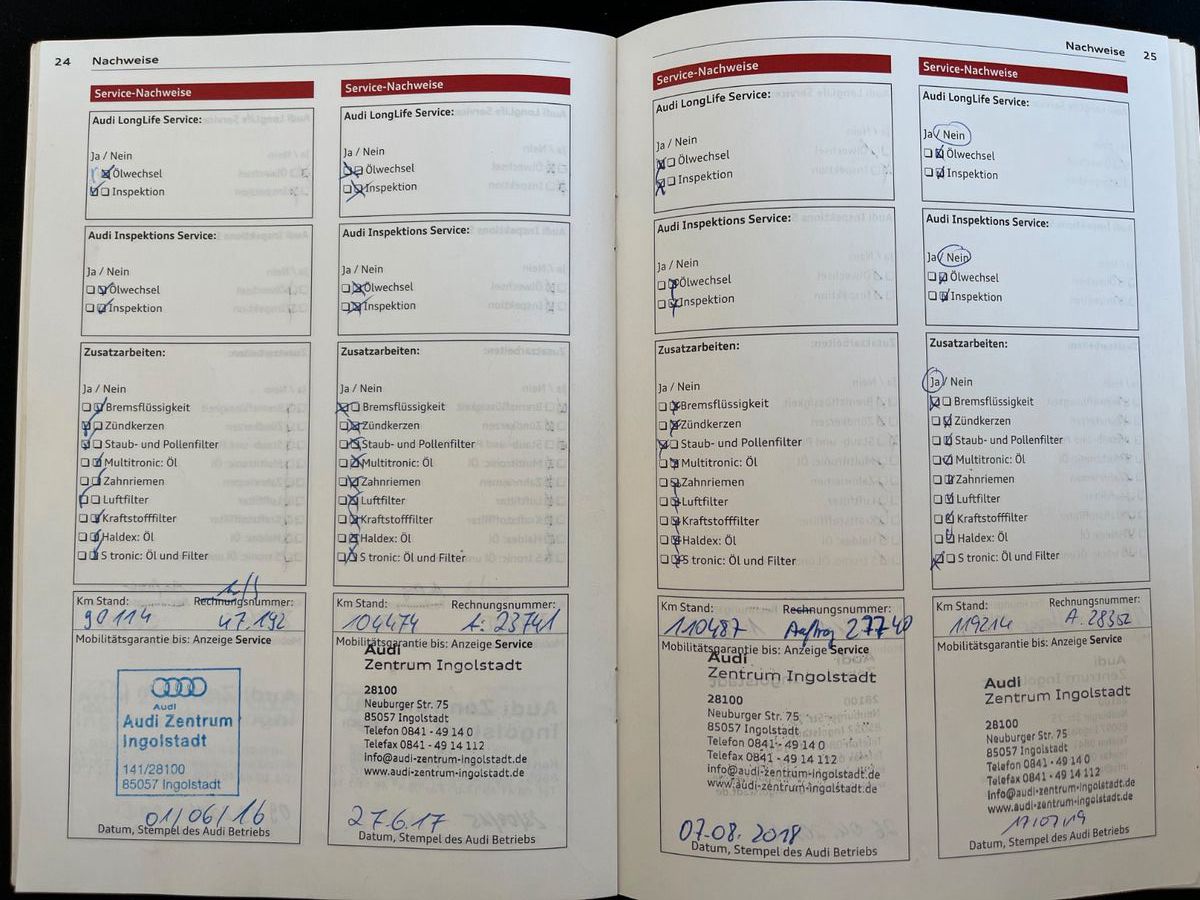 24 Nachweise
Service-Nachweise
Audi LongLife Service:
Ja / Nein
Ölwechsel
Inspektion
Audi Inspektions Service:
Ja / Nein
Ölwechsel
Inspektion
Zusatzarbeiten:
Ja / Nein
Bremsflüssigkeit
Zündkerzen
Staub- und Pollenfilter
Multitronic: Öl
Zahnriemen
Luftfilter
Kraftstofffilter
Haldex: Öl
S tronic: Öl und Filter
Km Stand: Rechnungsnummer:
90114 47.192
Mobilitätsgarantie bis: Anzeige Service
Audi
Audi Zentrum
Ingolstadt
141/28100
85057 Ingolstadt
01/06/16
Datum, Stempel des Audi Betriebs
Service-Nachweise
Audi LongLife Service:
Ja / Nein
Ölwechsel
Inspektion
Audi Inspektions Service:
Ja / Nein
Ölwechsel
Inspektion
Zusatzarbeiten:
Ja / Nein
Bremsflüssigkeit
Zündkerzen
Staub- und Pollenfilter
Multitronic: Öl
Zahnriemen
Luftfilter
Kraftstofffilter
Haldex: Öl
S tronic: Öl und Filter
Km Stand: Rechnungsnummer:
104474 A: 23741
Mobilitätsgarantie bis: Anzeige Service
Audi
Zentrum Ingolstadt
28100
Neuburger Str. 75
85057 Ingolstadt
Telefon 0841 - 49 14 0
Telefax 0841 - 49 14 112
info@audi-zentrum-ingolstadt.de
www.audi-zentrum-ingolstadt.de
27.6.17
Datum, Stempel des Audi Betriebs
Nachweise 25
Service-Nachweise
Audi LongLife Service:
Ja / Nein
Ölwechsel
Inspektion
Audi Inspektions Service:
Ja / Nein
Ölwechsel
Inspektion
Zusatzarbeiten:
Ja / Nein
Bremsflüssigkeit
Zündkerzen
Staub- und Pollenfilter
Multitronic: Öl
Zahnriemen
Luftfilter
Kraftstofffilter
Haldex: Öl
S tronic: Öl und Filter
Km Stand: Rechnungsnummer:
110487 Auftrag 27740
Mobilitätsgarantie bis: Anzeige Service
Audi
Zentrum Ingolstadt
28100
Neuburger Str. 75
85057 Ingolstadt
Telefon 0841 - 49 14 0
Telefax 0841 - 49 14 112
info@audi-zentrum-ingolstadt.de
www.audi-zentrum-ingolstadt.de
07.08.2018
Datum, Stempel des Audi Betriebs
Service-Nachweise
Audi LongLife Service:
Ja / Nein
Ölwechsel
Inspektion
Audi Inspektions Service:
Ja / Nein
Ölwechsel
Inspektion
Zusatzarbeiten:
Ja / Nein
Bremsflüssigkeit
Zündkerzen
Staub- und Pollenfilter
Multitronic: Öl
Zahnriemen
Luftfilter
Kraftstofffilter
Haldex: Öl
S tronic: Öl und Filter
Km Stand: Rechnungsnummer:
119214 A. 28302
Mobilitätsgarantie bis: Anzeige Service
Audi
Zentrum Ingolstadt
28100
Neuburger Str. 75
85057 Ingolstadt
Telefon 0841 - 49 14 0
Telefax 0841 - 49 14 112
info@audi-zentrum-ingolstadt.de
www.audi-zentrum-ingolstadt.de
17/07/19
Datum, Stempel des Audi Betriebs